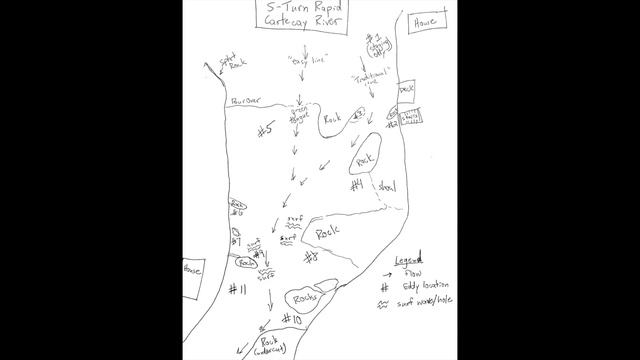 S-Turn Rapid
Cartecay River
House
#1
"easy line"
"Traditional"
line
Rock
Deck
Pourover
green
tongue
Rock
#3
#2
stairs
#5
Rock
#4
shoal
Rock
#6
surf
surf
Rock
#7
surf
#9
Rock
surf
#8
House
#11
Rocks
#10
Rock
(undercut)
Legend
→ Flow
# Eddy location
surf wave/hole